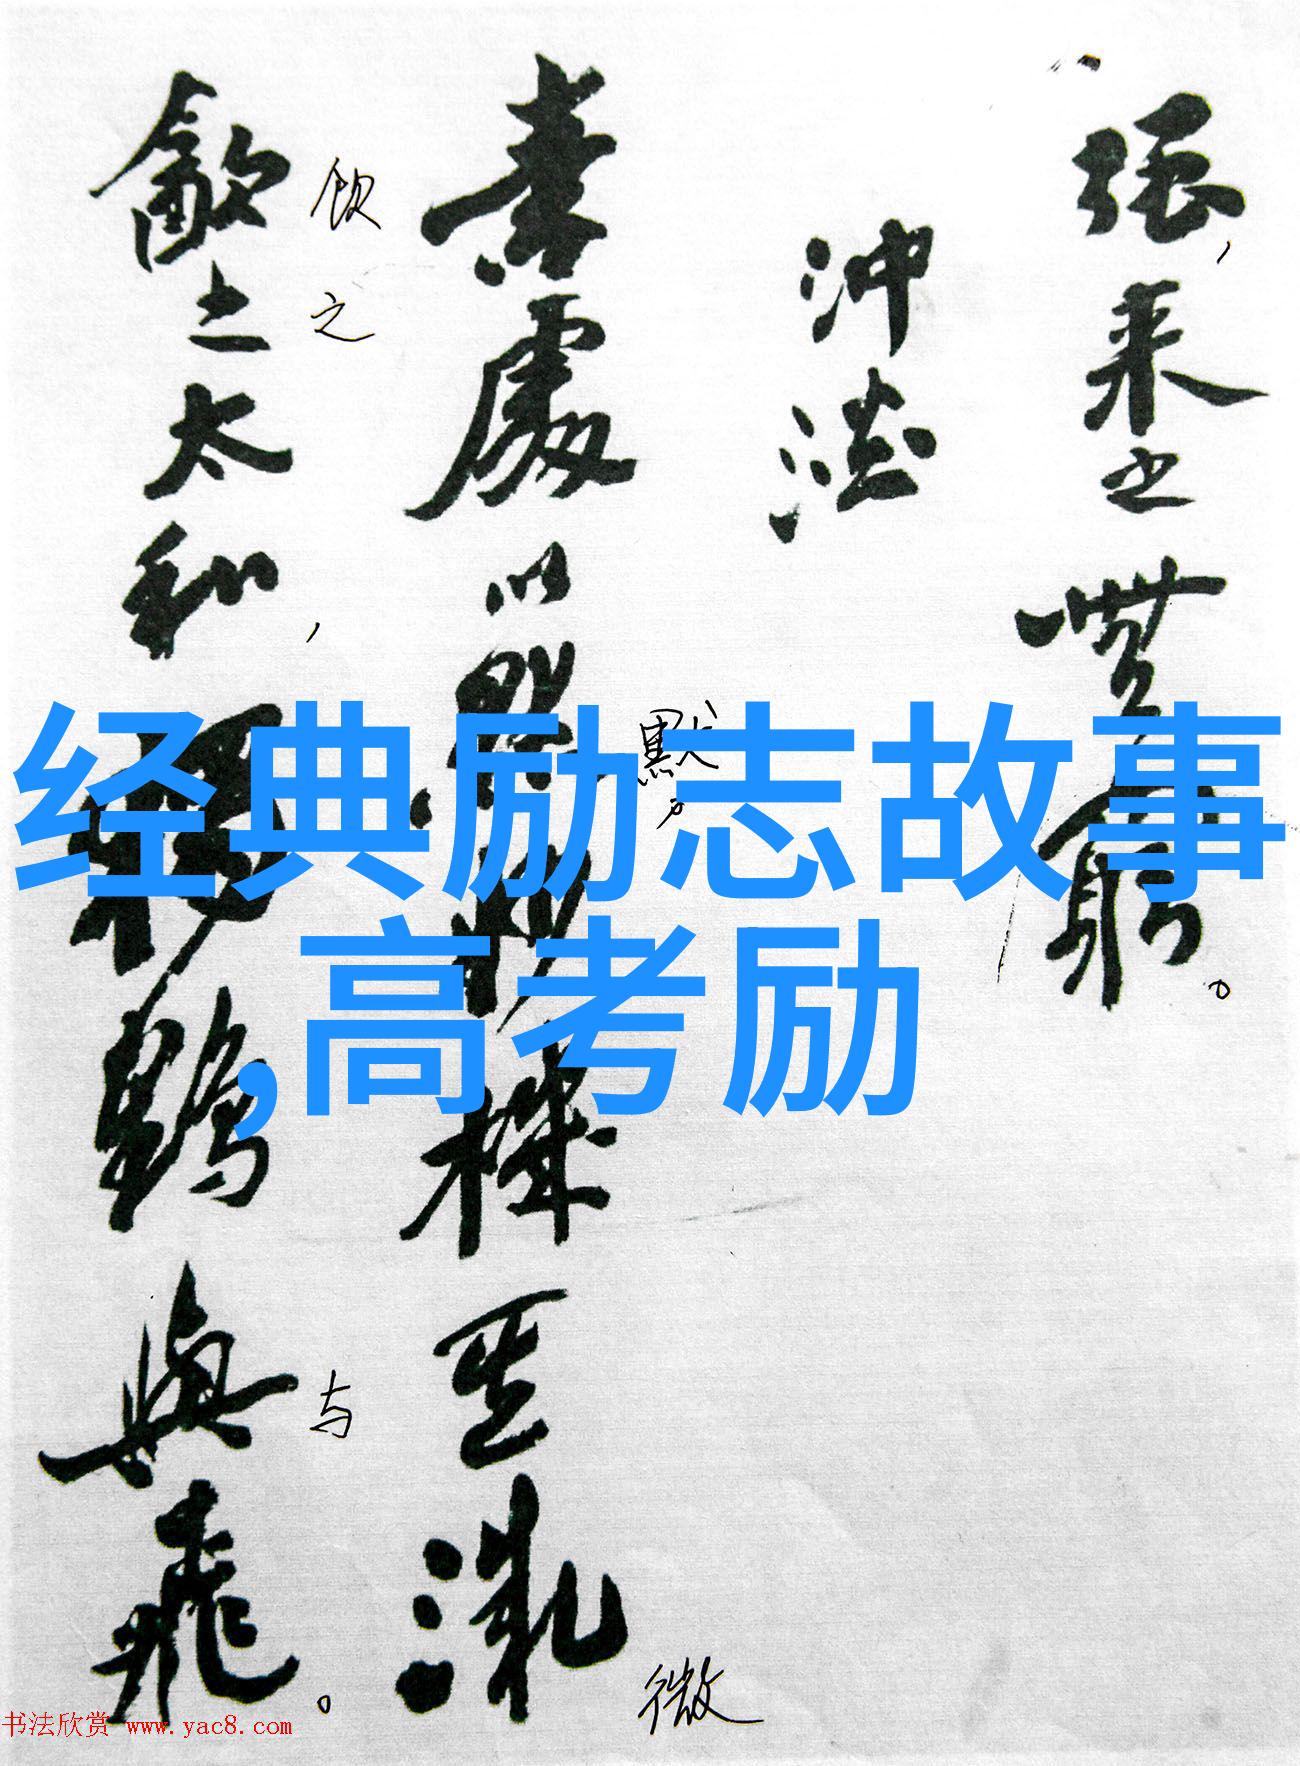 强，来之無窮。
冲澹
素處以默妙機其微
默。
微
飲之太和，獨鶴與飛。
饮之
与
经典励志故事
,高考励
书法欣赏 www.yac8.com